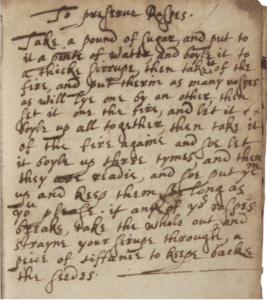 To preserve Raspes.
Take a pound of Sugar, and put to
it a pinte of Water and boyle it to
a thicke sirrupe, then take it of the
fire, and put therin as many raspes
as will lye one by an other, then
set it one the fire, and let it
boyle up all together then take it
of the fire againe and soe let
it boyle up three tymes and then
they are readie, and soe put ym
up and keep them so long as
yo please: if any of yo raspes
breake, take the whole out, and
strayne your sirupe through, a
peice of tiffenie to keepe backe
the seedes.